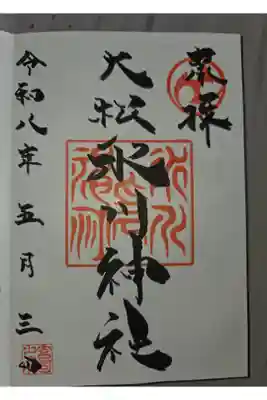 奉拝
大松氷川神社
令和八年 五月 三日